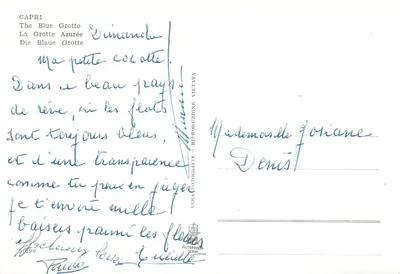 CAPRI
The Blue Grotto
La Grotte Azurée
Die Blaue Grotte
Dimanche
Ma petite cocotte.
Dans ce beau pays
de rêve, où les flots
sont toujours bleus,
et d'une transparence
comme tu peux en juger
je t'envoie mille
baisers parmi les fleurs
VERA FOTOGRAFIA - RIPRODUZIONE VIETATA
Mademoiselle Josiane
Denis